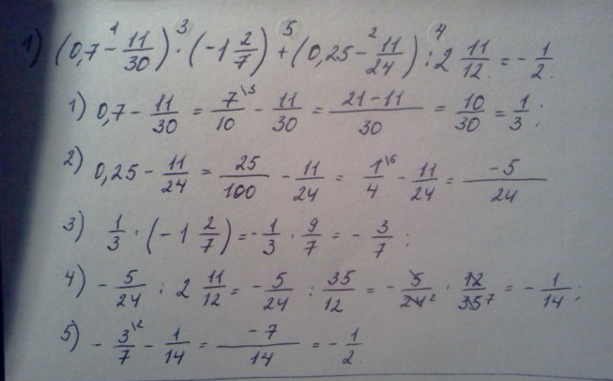 1) (0,7 -¹ 11/30) ·³ (-1 2/7) +⁵ (0,25 -² 11/24) :⁴ 2 11/12 = - 1/2.
1) 0,7 - 11/30 = 7\3/10 - 11/30 = 21-11/30 = 10/30 = 1/3;
2) 0,25 - 11/24 = 25/100 - 11/24 = 1\6/4 - 11/24 = -5/24
3) 1/3 · (-1 2/7) = - 1/3 · 9/7 = - 3/7;
4) - 5/24 : 2 11/12 = - 5/24 : 35/12 = - 5/24 2 · 12/35 7 = - 1/14;
5) - 3\2/7 - 1/14 = -7/14 = - 1/2